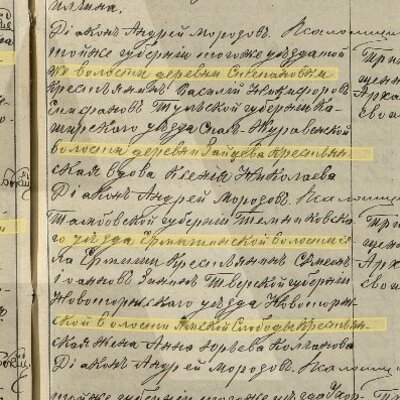 пичина.
Діаконъ Андрей Мородовъ. Псаломщикъ
тойже губерніи тогоже уѣзда той
же волости деревни Степановки
крестьянинъ Василій Никифоровъ
Епифановъ Тульской губерніи Ка-
ширскаго уѣзда Спас-Журавенской
волости деревни Зайцева крестьян-
ская вдова Ксенія Николаева
Діаконъ Андрей Мородовъ. Псаломщикъ
Тамбовской губерніи Темниковска-
го уѣзда Ермишинской волости се-
ла Ермиши крестьянинъ Симеонъ
Іоанновъ Зининъ Тверской губерніи
Новоторжскаго уѣзда Новоторж-
ской волости Ямской Слободы крестьян-
ская жена Анна Юрьева Колганова
Діаконъ Андрей Мородовъ. Псаломщикъ
тойже губерніи тогоже уѣзда
При
щенн
Арха
свои
При
щен
Арх
свои